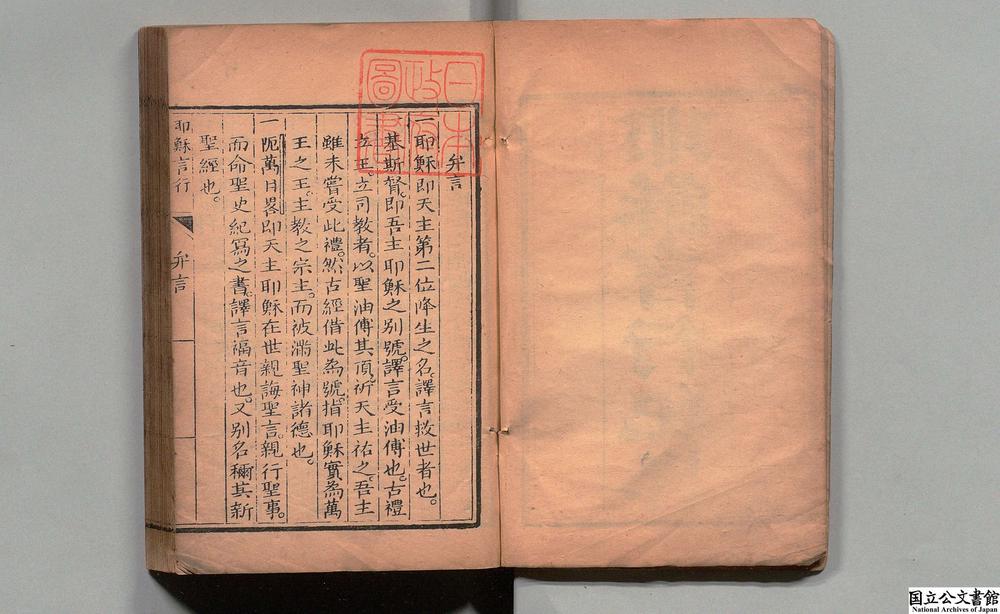 弁言
一耶穌即天主第二位降生之名。譯言救世者也。
基斯督。即吾主耶穌之別號。譯言受油傅也。古禮
立王。立司教者。以聖油傅其頂。祈天主祐之。吾主
雖未嘗受此禮。然古經借此為號。指耶穌實為萬
王之王。主教之宗主。而被滿聖神諸德也。
一阨萬日畧即天主耶穌在世親誨聖言。親行聖事。
而命聖史紀寫之書。譯言福音也。又別名穪其新
聖經也。
耶穌言行
弁言
日本
政府
圖書
国立公文書館
National Archives of Japan